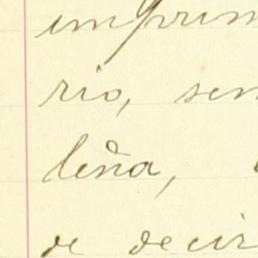 imprim
rio, sen
leña,
de decir